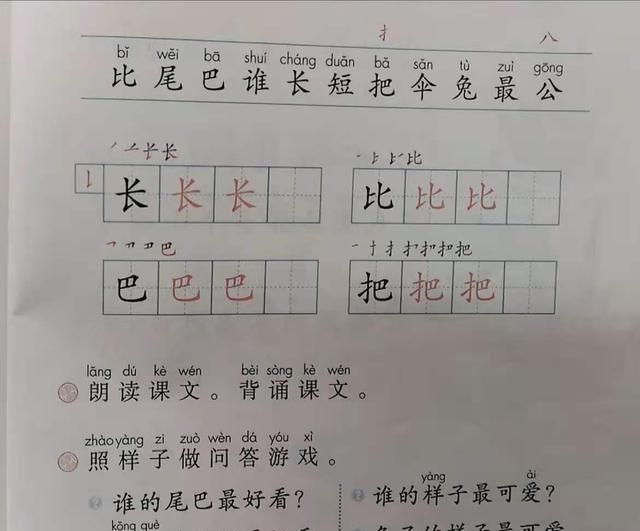 扌 八
bǐ wěi bā shuí cháng duǎn bǎ sǎn tù zuì gōng
比 尾 巴 谁 长 短 把 伞 兔 最 公
长 长 长
比 比 比
巴 巴 巴
把 把 把
lǎng dú kè wén bèi sòng kè wén
朗读课文。背诵课文。
zhào yàng zi zuò wèn dá yóu xì
照样子做问答游戏。
谁的尾巴最好看?
yàng ài
谁的样子最可爱?
kǒng què